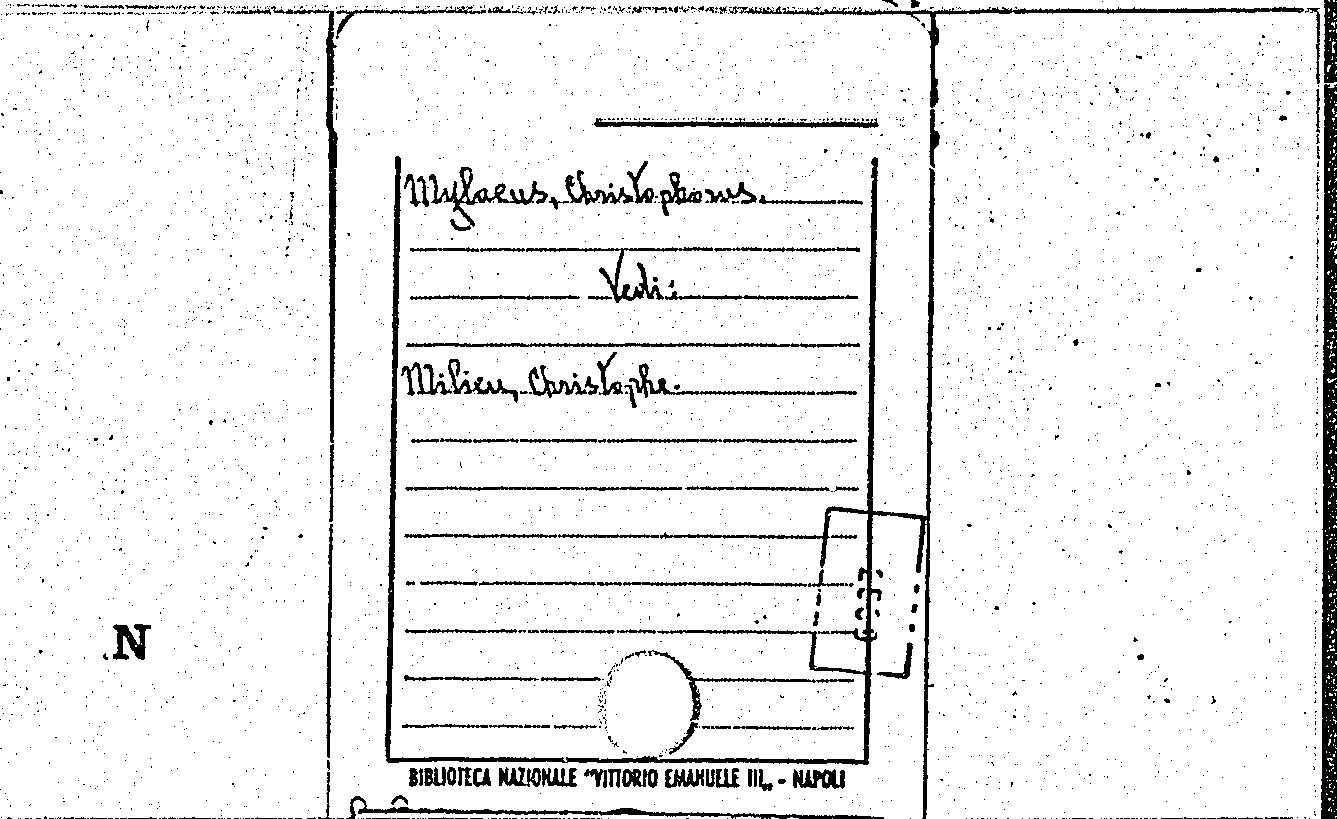 Mylaeus, Christophorus.
Vedi:
Milieu, Christophe.
N
BIBLIOTECA NAZIONALE "VITTORIO EMANUELE III„ - NAPOLI